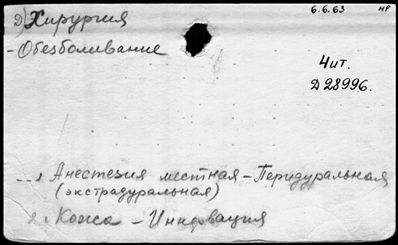 2) Хирургия
6.6.63 нр
- Обезболивание
Чит.
Д 28996.
1 Анестезия местная - Перидуральная
(экстрадуральная)
2. Кожа - Иннервация